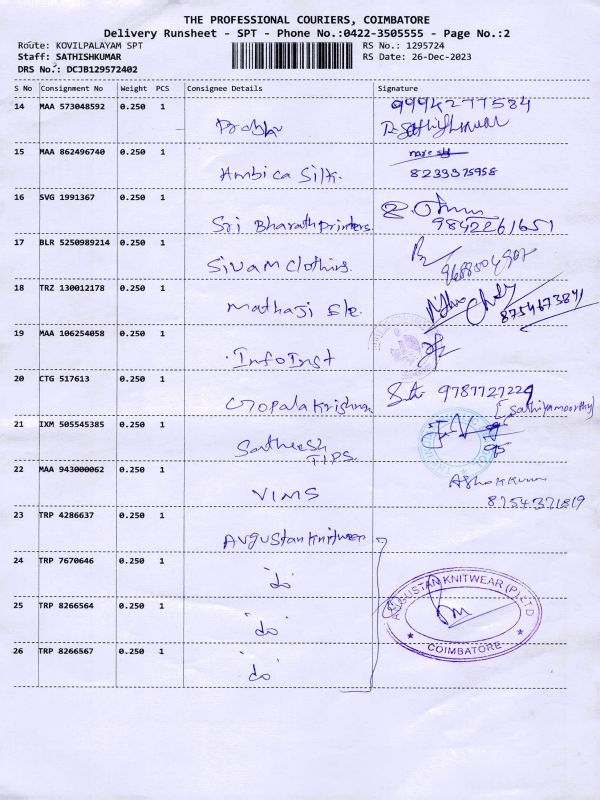 THE PROFESSIONAL COURIERS, COIMBATORE
Delivery Runsheet - SPT - Phone No.:0422-3505555 - Page No.:2
Route: KOVILPALAYAM SPT RS No.: 1295724
Staff: SATHISHKUMAR RS Date: 26-Dec-2023
DRS No.: DCJB129572402
S No Consignment No Weight PCS Consignee Details Signature
14 MAA 573048592 0.250 1 9994277584
Prabhu R.Sathishkumar
15 MAA 862496740 0.250 1
Ambica Silk. 8233375958
16 SVG 1991367 0.250 1
Sri Bharath Printers. 9842261651
17 BLR 5250989214 0.250 1
Sivam Clothins. 9688504907
18 TRZ 130012178 0.250 1
Mathaji Ele. 8754673841
19 MAA 106254058 0.250 1
InfoInst
20 CTG 517613 0.250 1
Gopalakrishna 9787727229
[Sathiyamoorthy]
21 IXM 505545385 0.250 1
Satheesh
TIPS.
22 MAA 943000062 0.250 1 Ashokkumar
VIMS 8754371819
23 TRP 4286637 0.250 1
Augustan Knitwear
24 TRP 7670646 0.250 1
do
25 TRP 8266564 0.250 1
do
26 TRP 8266567 0.250 1
do
AUGUSTAN KNITWEAR (P) LTD
COIMBATORE